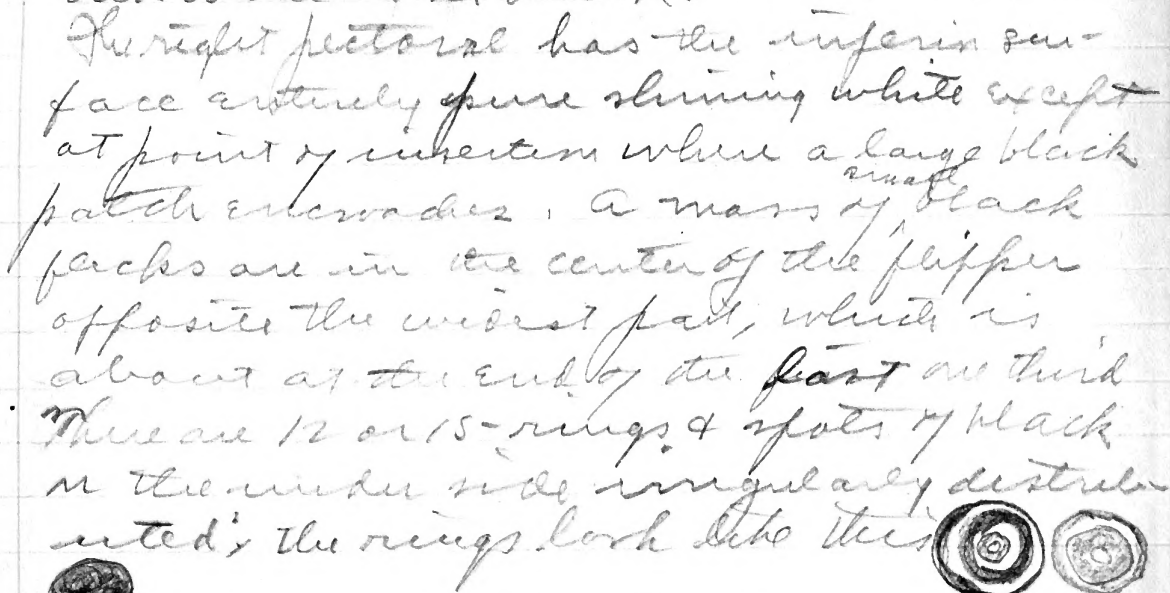 The right pectoral has the inferior sur-
face entirely pure shining white except
at point of insertion where a large black
patch encroaches. A mass of small black
flecks are in the center of the flipper
opposite the widest part, which is
about at the end of the first one third
There are 12 or 15 rings & spots of black
on the under side irregularly distrib-
uted; the rings look like this